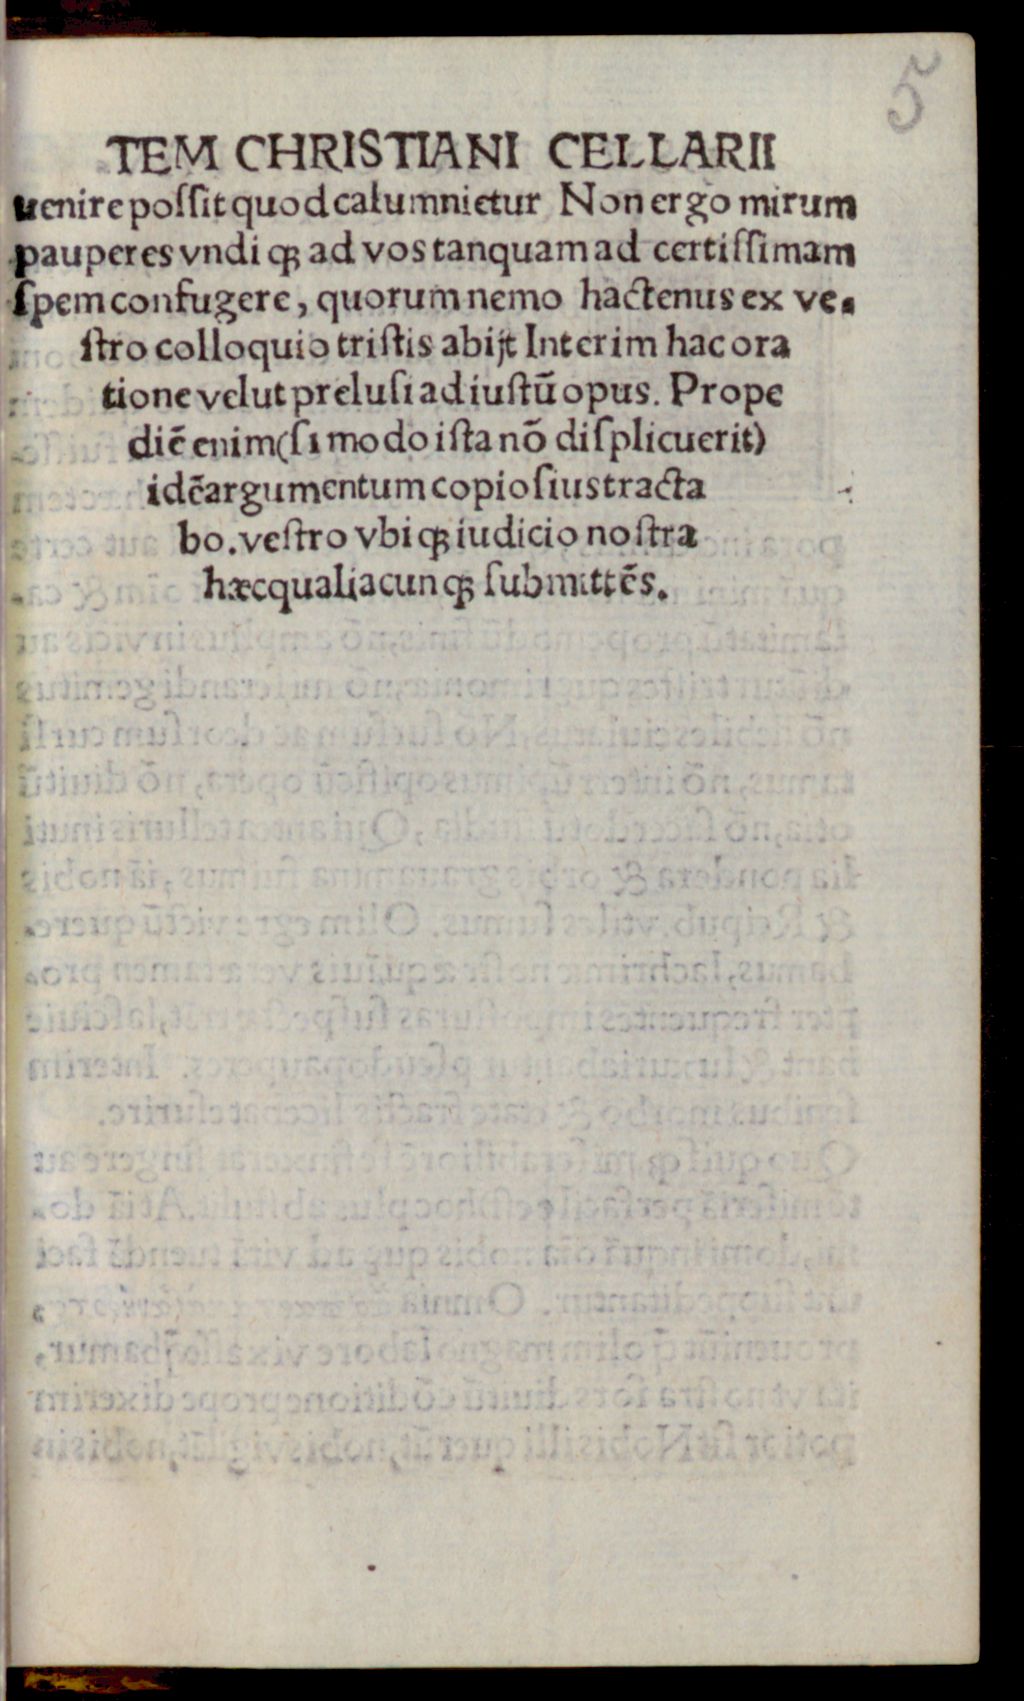 5
TEM CHRISTIANI CELLARII
uenire poſſit quod calumnietur Non ergo mirum
pauperes vndiqꝫ ad vos tanquam ad certiſſimam
ſpem confugere, quorum nemo hactenus ex ve-
ſtro colloquio triſtis abijt Interim hac ora
tione velut preluſi ad iuſtū opus. Prope
diē enim (ſi modo iſta nō diſplicuerit)
idē argumentum copioſius tracta
bo. veſtro vbiqꝫ iudicio noſtra
hæc qualiacunqꝫ ſubmittēs.